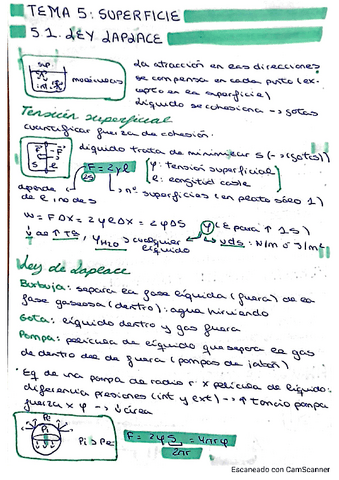 TEMA 5: SUPERFICIE
5 1. LEY LAPLACE
sup.
int.
moléculas
La atracción en las direcciones
se compensa en cada punto (ex-
cepto en la superficie)
líquido se cohesiona → gotas
Tensión superficial
cuantificar fuerza de cohesión.
líquido trata de minimizar S (→ gotas)
F = 2γl
γ: tensión superficial
l: longitud cable
depende
de l, no de S
nº superficies (en plato sólo 1)
W = FΔX = 2γlΔX = 2γΔS
γ (E para ↑ 1S)
γH2O > cualquier
líquido
uds: N/m o J/m²
Ley de Laplace
Burbuja: separa la fase líquida (fuera) de la
fase gaseosa (dentro): agua hirviendo
Gota: líquido dentro y gas fuera
Pompa: película de líquido que separa el gas
de dentro del de fuera (pompas de jabón)
Eq de una pompa de radio r x película de líquido:
diferencia presiones (int y ext) →
fuerza x γ → ↓ área
Pe
Pi
Pi > Pe
Escaneado con CamScanner